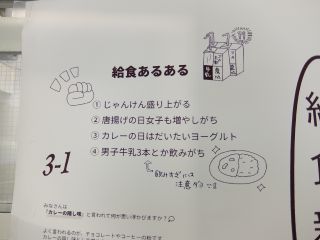 給食あるある
① じゃんけん盛り上がる
② 唐揚げの日女子も増やしがち
③ カレーの日はだいたいヨーグルト
④ 男子牛乳3本とか飲みがち
3-1
みなさんは
「カレーの隠し味」と言われて何が思い浮かびますか？
よく言われるのが、チョコレートやコーヒーの粉です。